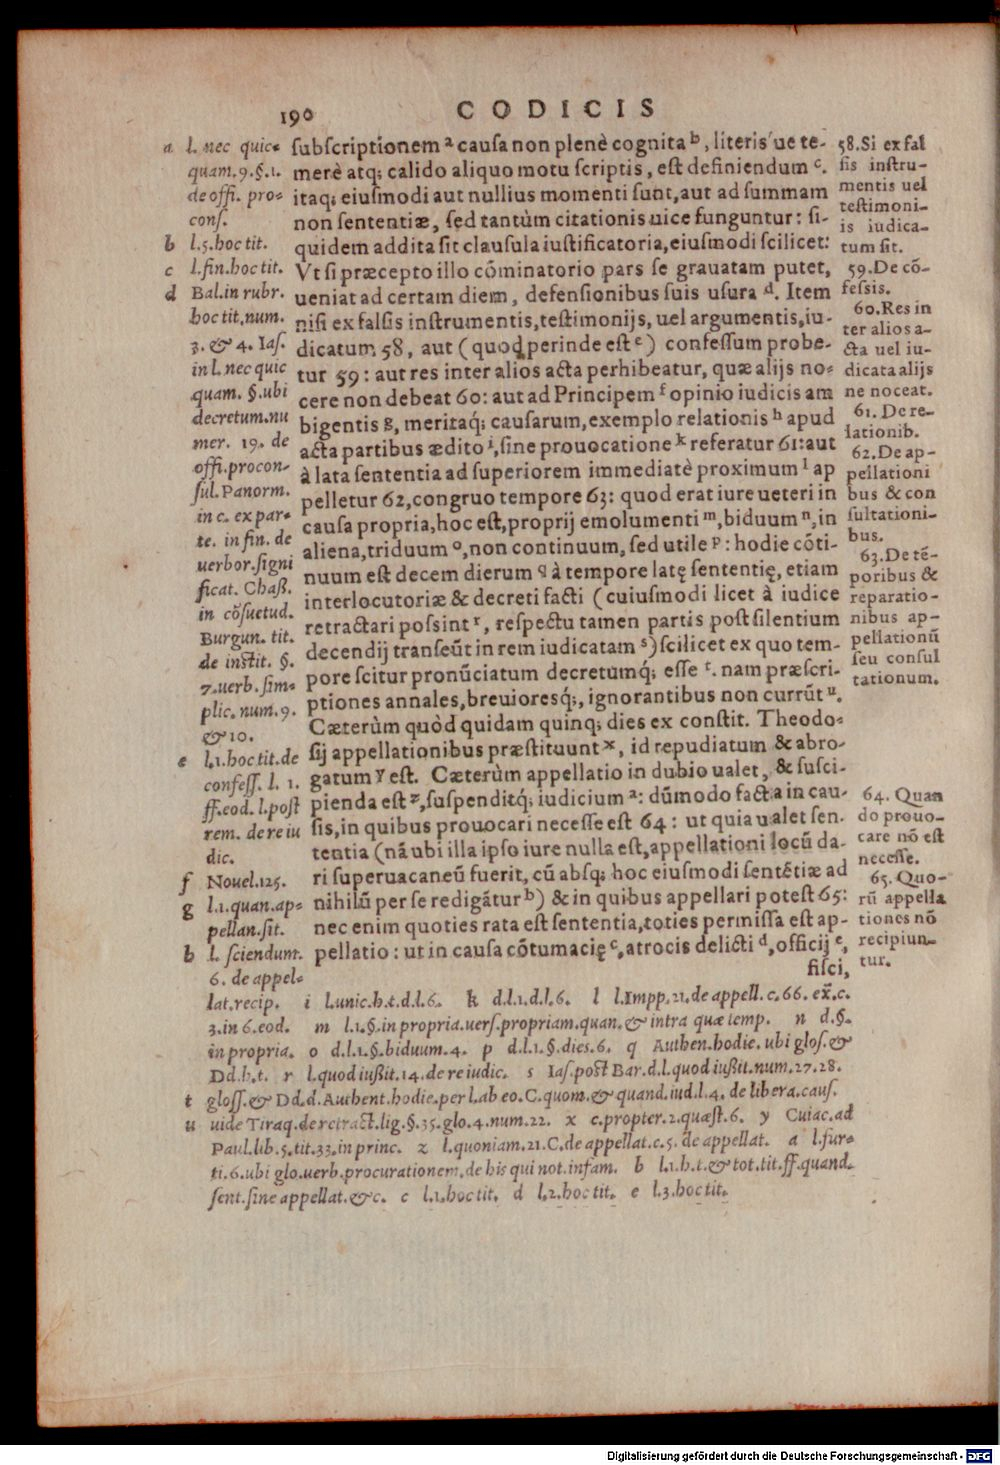 190 CODICIS
ſubſcriptionem a cauſa non plenè cognita b, literis ue te-
merè atq; calido aliquo motu ſcriptis, eſt definiendum c.
itaq; eiuſmodi aut nullius momenti ſunt, aut ad ſummam
non ſententiæ, ſed tantùm citationis uice funguntur: ſi-
quidem addita ſit clauſula iuſtificatoria, eiuſmodi ſcilicet:
Vt ſi præcepto illo cõminatorio pars ſe grauatam putet,
ueniat ad certam diem, defenſionibus ſuis uſura d. Item
niſi ex falſis inſtrumentis, teſtimonijs, uel argumentis, iu-
dicatum 58, aut (quod perinde eſt e) confeſſum probe-
tur 59: aut res inter alios acta perhibeatur, quæ alijs no-
cere non debeat 60: aut ad Principem f opinio iudicis am
bigentis g, meritaq́; cauſarum, exemplo relationis h apud
acta partibus ædito i, ſine prouocatione k referatur 61: aut
à lata ſententia ad ſuperiorem immediatè proximum l ap
pelletur 62, congruo tempore 63: quod erat iure ueteri in
cauſa propria, hoc eſt, proprij emolumenti m, biduum n, in
aliena, triduum o, non continuum, ſed utile p: hodie cõti-
nuum eſt decem dierum q à tempore latę ſententię, etiam
interlocutoriæ & decreti facti (cuiuſmodi licet à iudice
retractari poſsint r, reſpectu tamen partis poſt ſilentium
decendij tranſeũt in rem iudicatam s) ſcilicet ex quo tem-
pore ſcitur pronũciatum decretumq́; eſſe t. nam præſcri-
ptiones annales, breuioresq́;, ignorantibus non currũt u.
Cæterùm quòd quidam quinq; dies ex conſtit. Theodo-
ſij appellationibus præſtituunt x, id repudiatum & abro-
gatum y eſt. Cæterùm appellatio in dubio ualet, & ſuſci-
pienda eſt z, ſuſpenditq́; iudicium a: dũmodo facta in cau-
ſis, in quibus prouocari neceſſe eſt 64: ut quia ualet ſen-
tentia (nã ubi illa ipſo iure nulla eſt, appellationi locũ da-
ri ſuperuacaneũ fuerit, cũ abſq; hoc eiuſmodi ſentẽtiæ ad
nihilũ per ſe redigãtur b) & in quibus appellari poteſt 65:
nec enim quoties rata eſt ſententia, toties permiſſa eſt ap-
pellatio: ut in cauſa cõtumacię c, atrocis delicti d, officij e,
fiſci,
a l. nec quic-
quam. 9. §. 1.
de offi. pro-
conſ.
b l. 5. hoc tit.
c l. fin. hoc tit.
d Bal. in rubr.
hoc tit. num.
3. & 4. Iaſ.
in l. nec quic
quam. §. ubi
decretum. nu
mer. 19. de
offi. procon-
ſul. Panorm.
in c. ex par-
te. in fin. de
uerbor. ſigni
ficat. Chaß.
in cõſuetud.
Burgun. tit.
de inſtit. §.
7. uerb. ſim-
plic. num. 9.
& 10.
e l. 1. hoc tit. de
confeſſ. l. 1.
ff. eod. l. poſt
rem. de re iu
dic.
f Nouel. 125.
g l. 1. quan. ap-
pellan. ſit.
h l. ſciendum.
6. de appel-
lat. recip. i l. unic. h. t. d. l. 6. k d. l. 1. d. l. 6. l l. Impp. 21. de appell. c. 66. ex̃. c.
3. in 6. eod. m l. 1. §. in propria. uerſ. propriam. quan. & intra quæ temp. n d. §.
in propria. o d. l. 1. §. biduum. 4. p d. l. 1. §. dies. 6. q Authen. hodie. ubi gloſ. &
Dd. h. t. r l. quod iußit. 14. de re iudic. s Iaſ. poſt Bar. d. l. quod iußit. num. 27. 28.
t gloſſ. & Dd. d. Authent. hodie. per l. ab eo. C. quom. & quand. iud. l. 4. de libera. cauſ.
u uide Tiraq. de retract. lig. §. 35. glo. 4. num. 22. x c. propter. 2. quæſt. 6. y Cuiac. ad
Paul. lib. 5. tit. 33. in princ. z l. quoniam. 21. C. de appellat. c. 5. de appellat. a l. fur-
ti. 6. ubi glo. uerb. procurationem. de his qui not. infam. b l. 1. h. t. & tot. tit. ff. quand.
ſent. ſine appellat. &c. c l. 1. hoc tit. d l. 2. hoc tit. e l. 3. hoc tit.
58. Si ex fal
ſis inſtru-
mentis uel
teſtimoni-
is iudica-
tum ſit.
59. De cõ-
feſsis.
60. Res in
ter alios a-
cta uel iu-
dicata alijs
ne noceat.
61. De re-
lationib.
62. De ap-
pellationi
bus & con
ſultationi-
bus.
63. De tẽ-
poribus &
reparatio-
nibus ap-
pellationũ
ſeu conſul
tationum.
64. Quan
do prouo-
care nõ eſt
neceſſe.
65. Quo-
rũ appella
tiones nõ
recipiun-
tur.
Digitalisierung gefördert durch die Deutsche Forschungsgemeinschaft - DFG